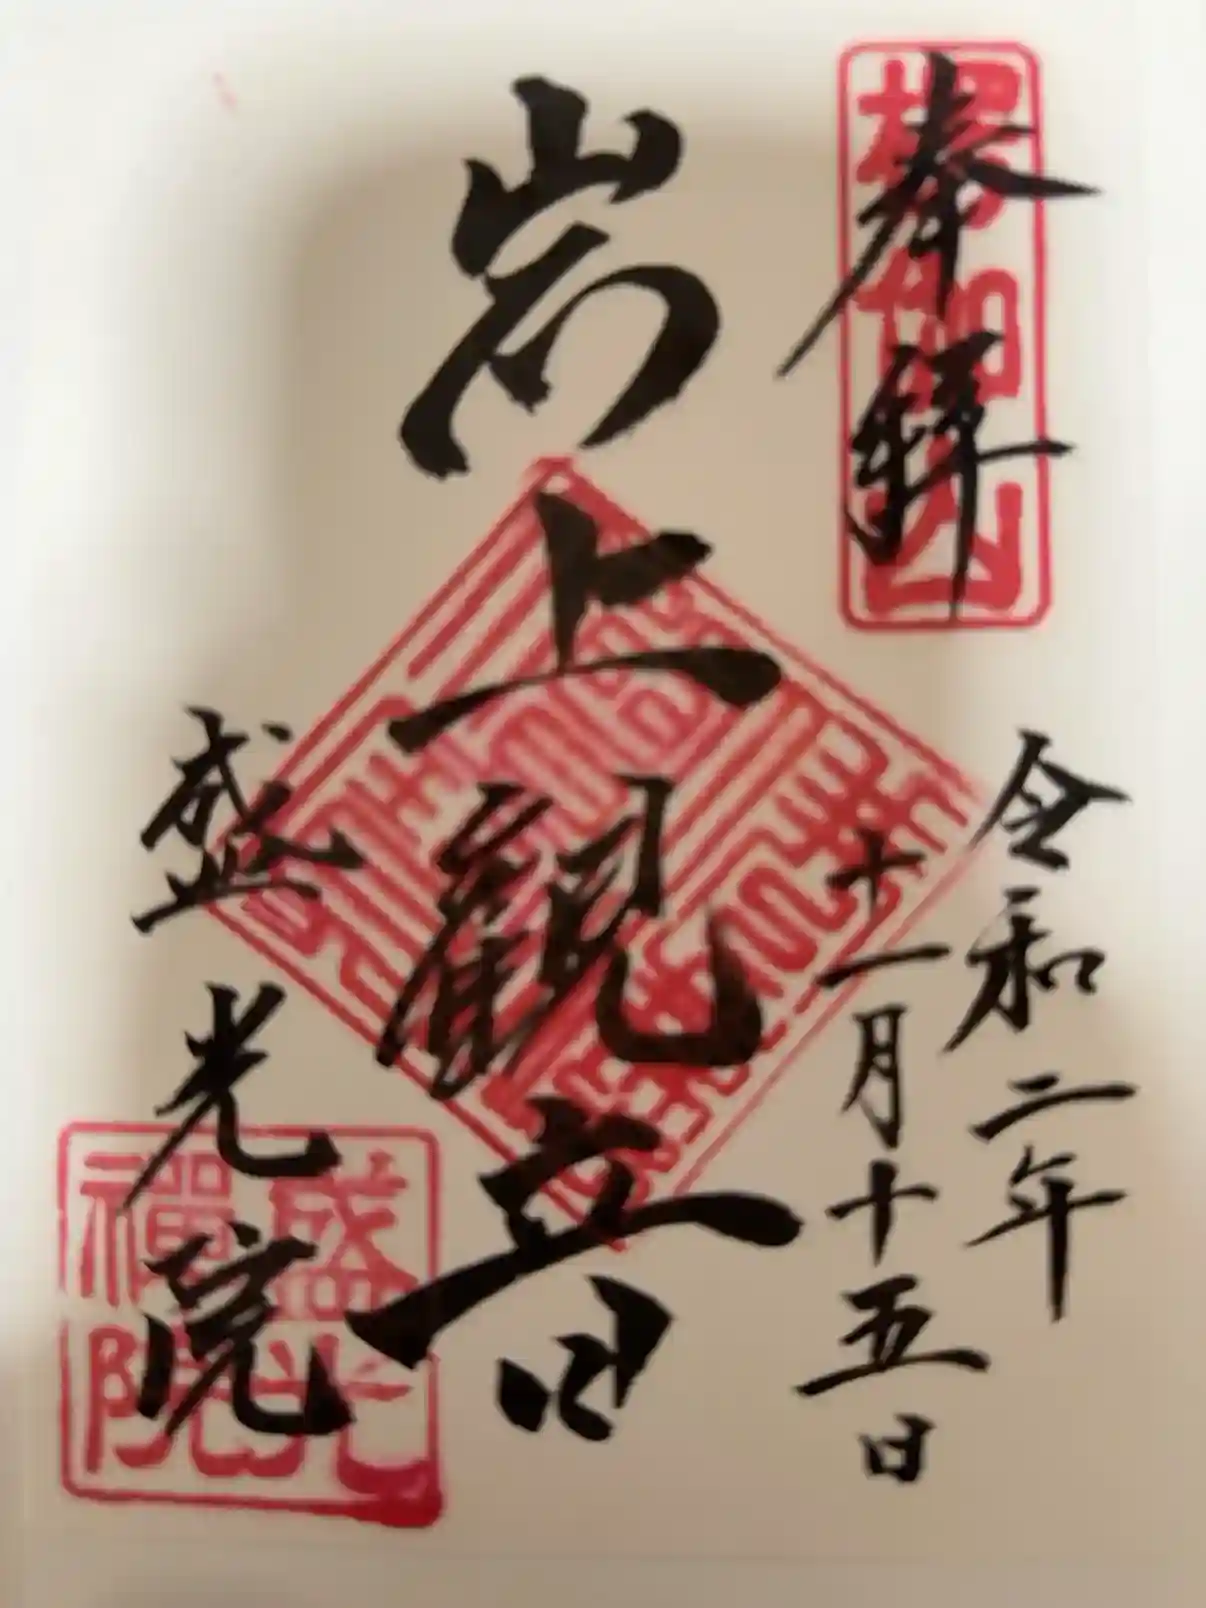 奉拝
楞伽山
令和二年
十一月十五日
岩上観音
盛光院
盛光
禪院